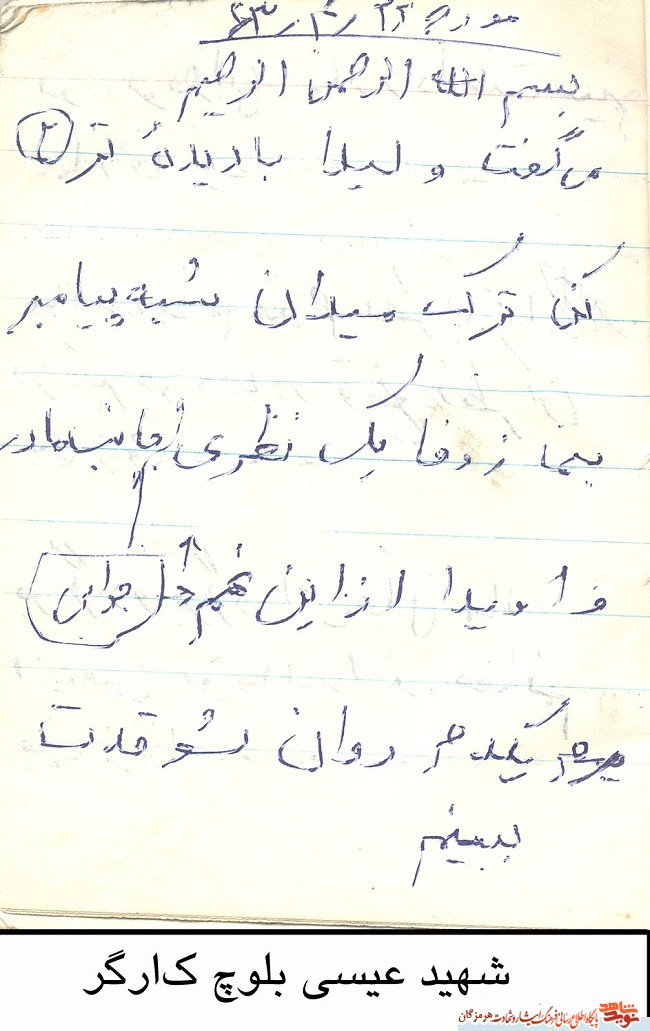 مورخه ۲۲/۴/۶۳
بسم الله الرحمن الرحیم
می گفت و لیلا با دیدهٔ تر ۲
کن ترک میدان شبه پیامبر
بنما ز وفا یک نظری جانب مادر
فا ویدا از این غم جوانی
یکدم روان شو قدت
ببینم
شهید عیسی بلوچ کارگر
نوید شاهد پایگاه اطلاع رسانی فرهنگ ایثار و شهادت هرمزگان